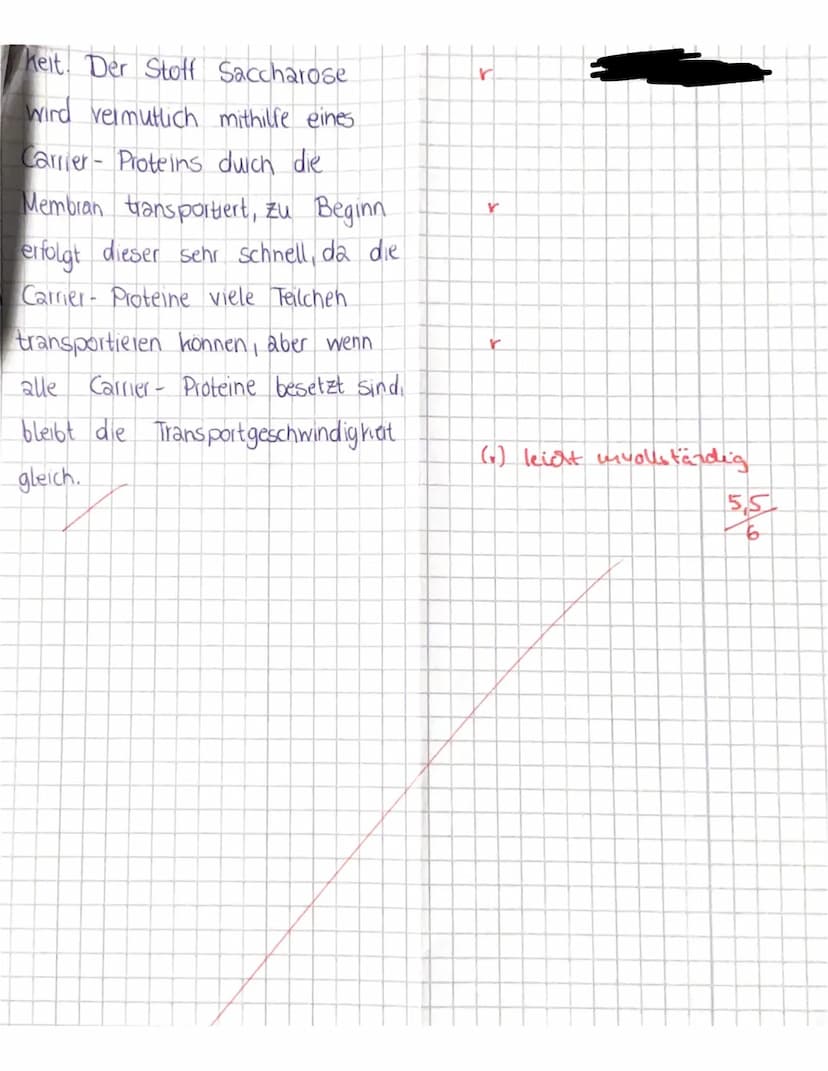 keit. Der Stoff Saccharose
r
wird vermutlich mithilfe eines
Carrier- Proteins durch die
Membran transportiert, zu Beginn
r
erfolgt dieser sehr schnell, da die
Carrier- Proteine viele Teilchen
transportieren können, aber wenn
r
alle Carrier- Proteine besetzt sind,
bleibt die Transportgeschwindigkeit
gleich.
(r) leicht unvollständig
5,5
6